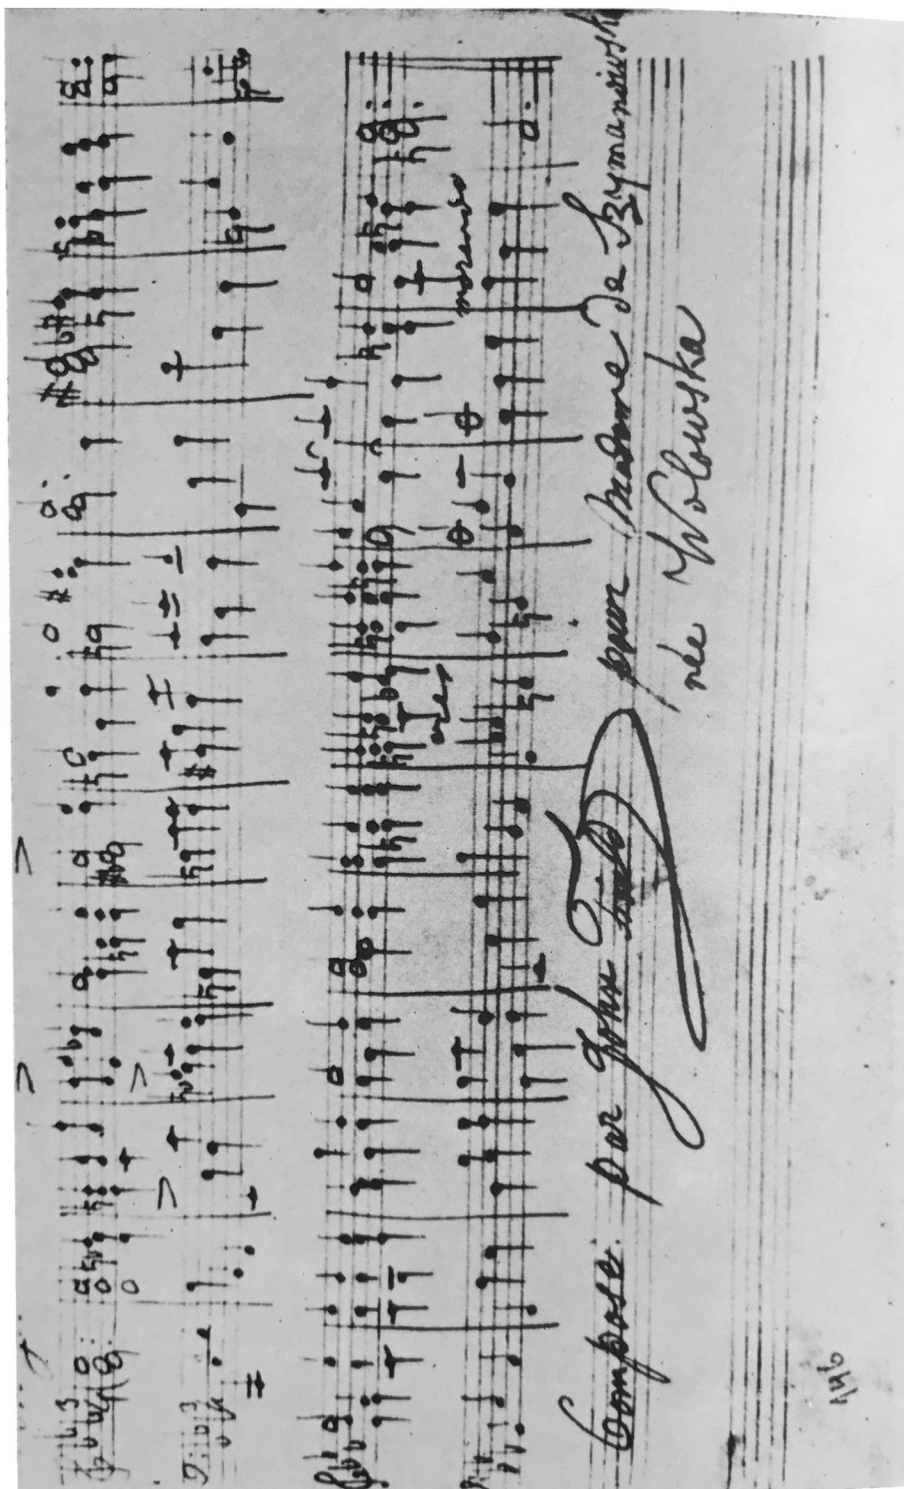 morendo
Composé. par John Field pour Madame de Szymanowska
née Wolowska
146